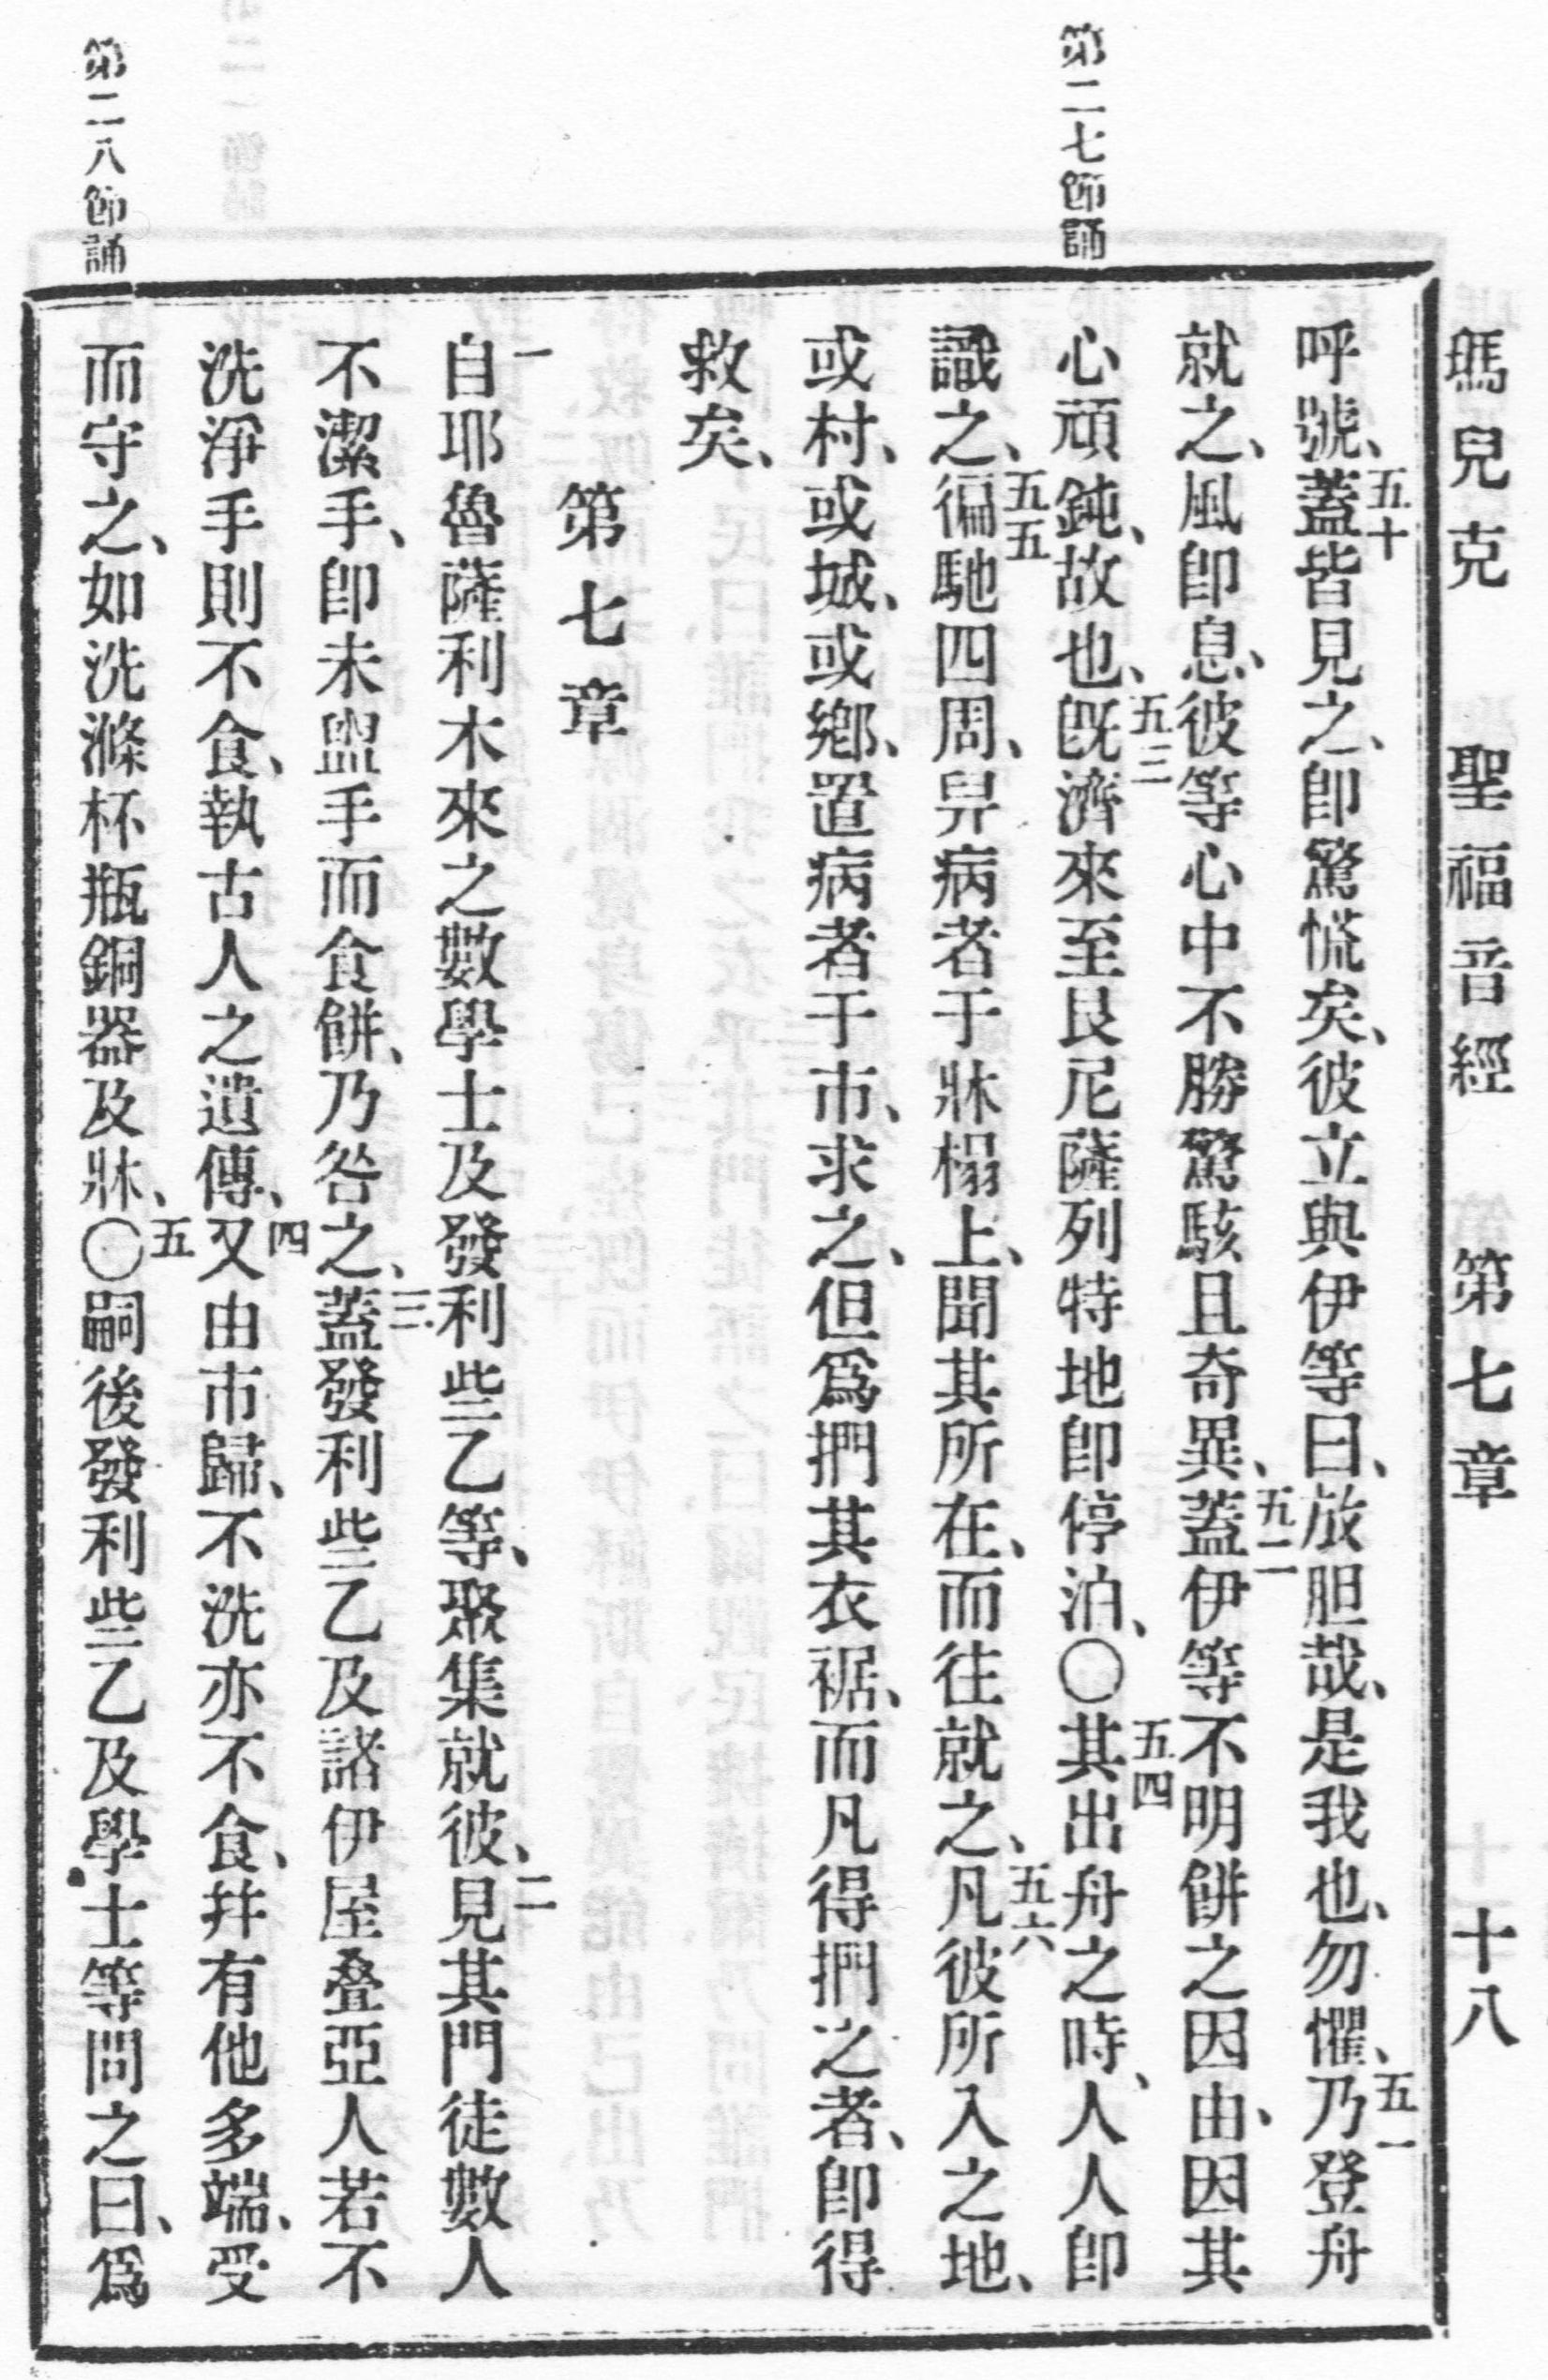 瑪兒克　聖福音經　第七章　十八
第二七節誦
呼號、五十蓋皆見之、卽驚慌矣、彼立與伊等曰、放胆哉、是我也、勿懼、五一乃登舟
就之、風卽息、彼等心中不勝驚駭且奇異、五二蓋伊等不明餅之因由、因其
心頑鈍、故也、五三旣濟來至艮尼薩列特地卽停泊、〇五四其出舟之時、人人卽
識之、五五徧馳四周、舁病者于牀榻上、聞其所在、而往就之、五六凡彼所入之地、
或村、或城、或鄉、置病者于市、求之、但爲捫其衣裾、而凡得捫之者、卽得
救矣、
第七章
一自耶魯薩利木來之數學士及發利些乙等、聚集就彼、二見其門徒數人
不潔手、卽未盥手而食餅、乃咎之、三蓋發利些乙及諸伊屋叠亞人若不
洗淨手則不食、執古人之遺傳、四又由市歸、不洗亦不食、幷有他多端、受
而守之、如洗滌杯瓶銅器及牀、〇五嗣後發利些乙及學士等問之曰、爲
第二八節誦